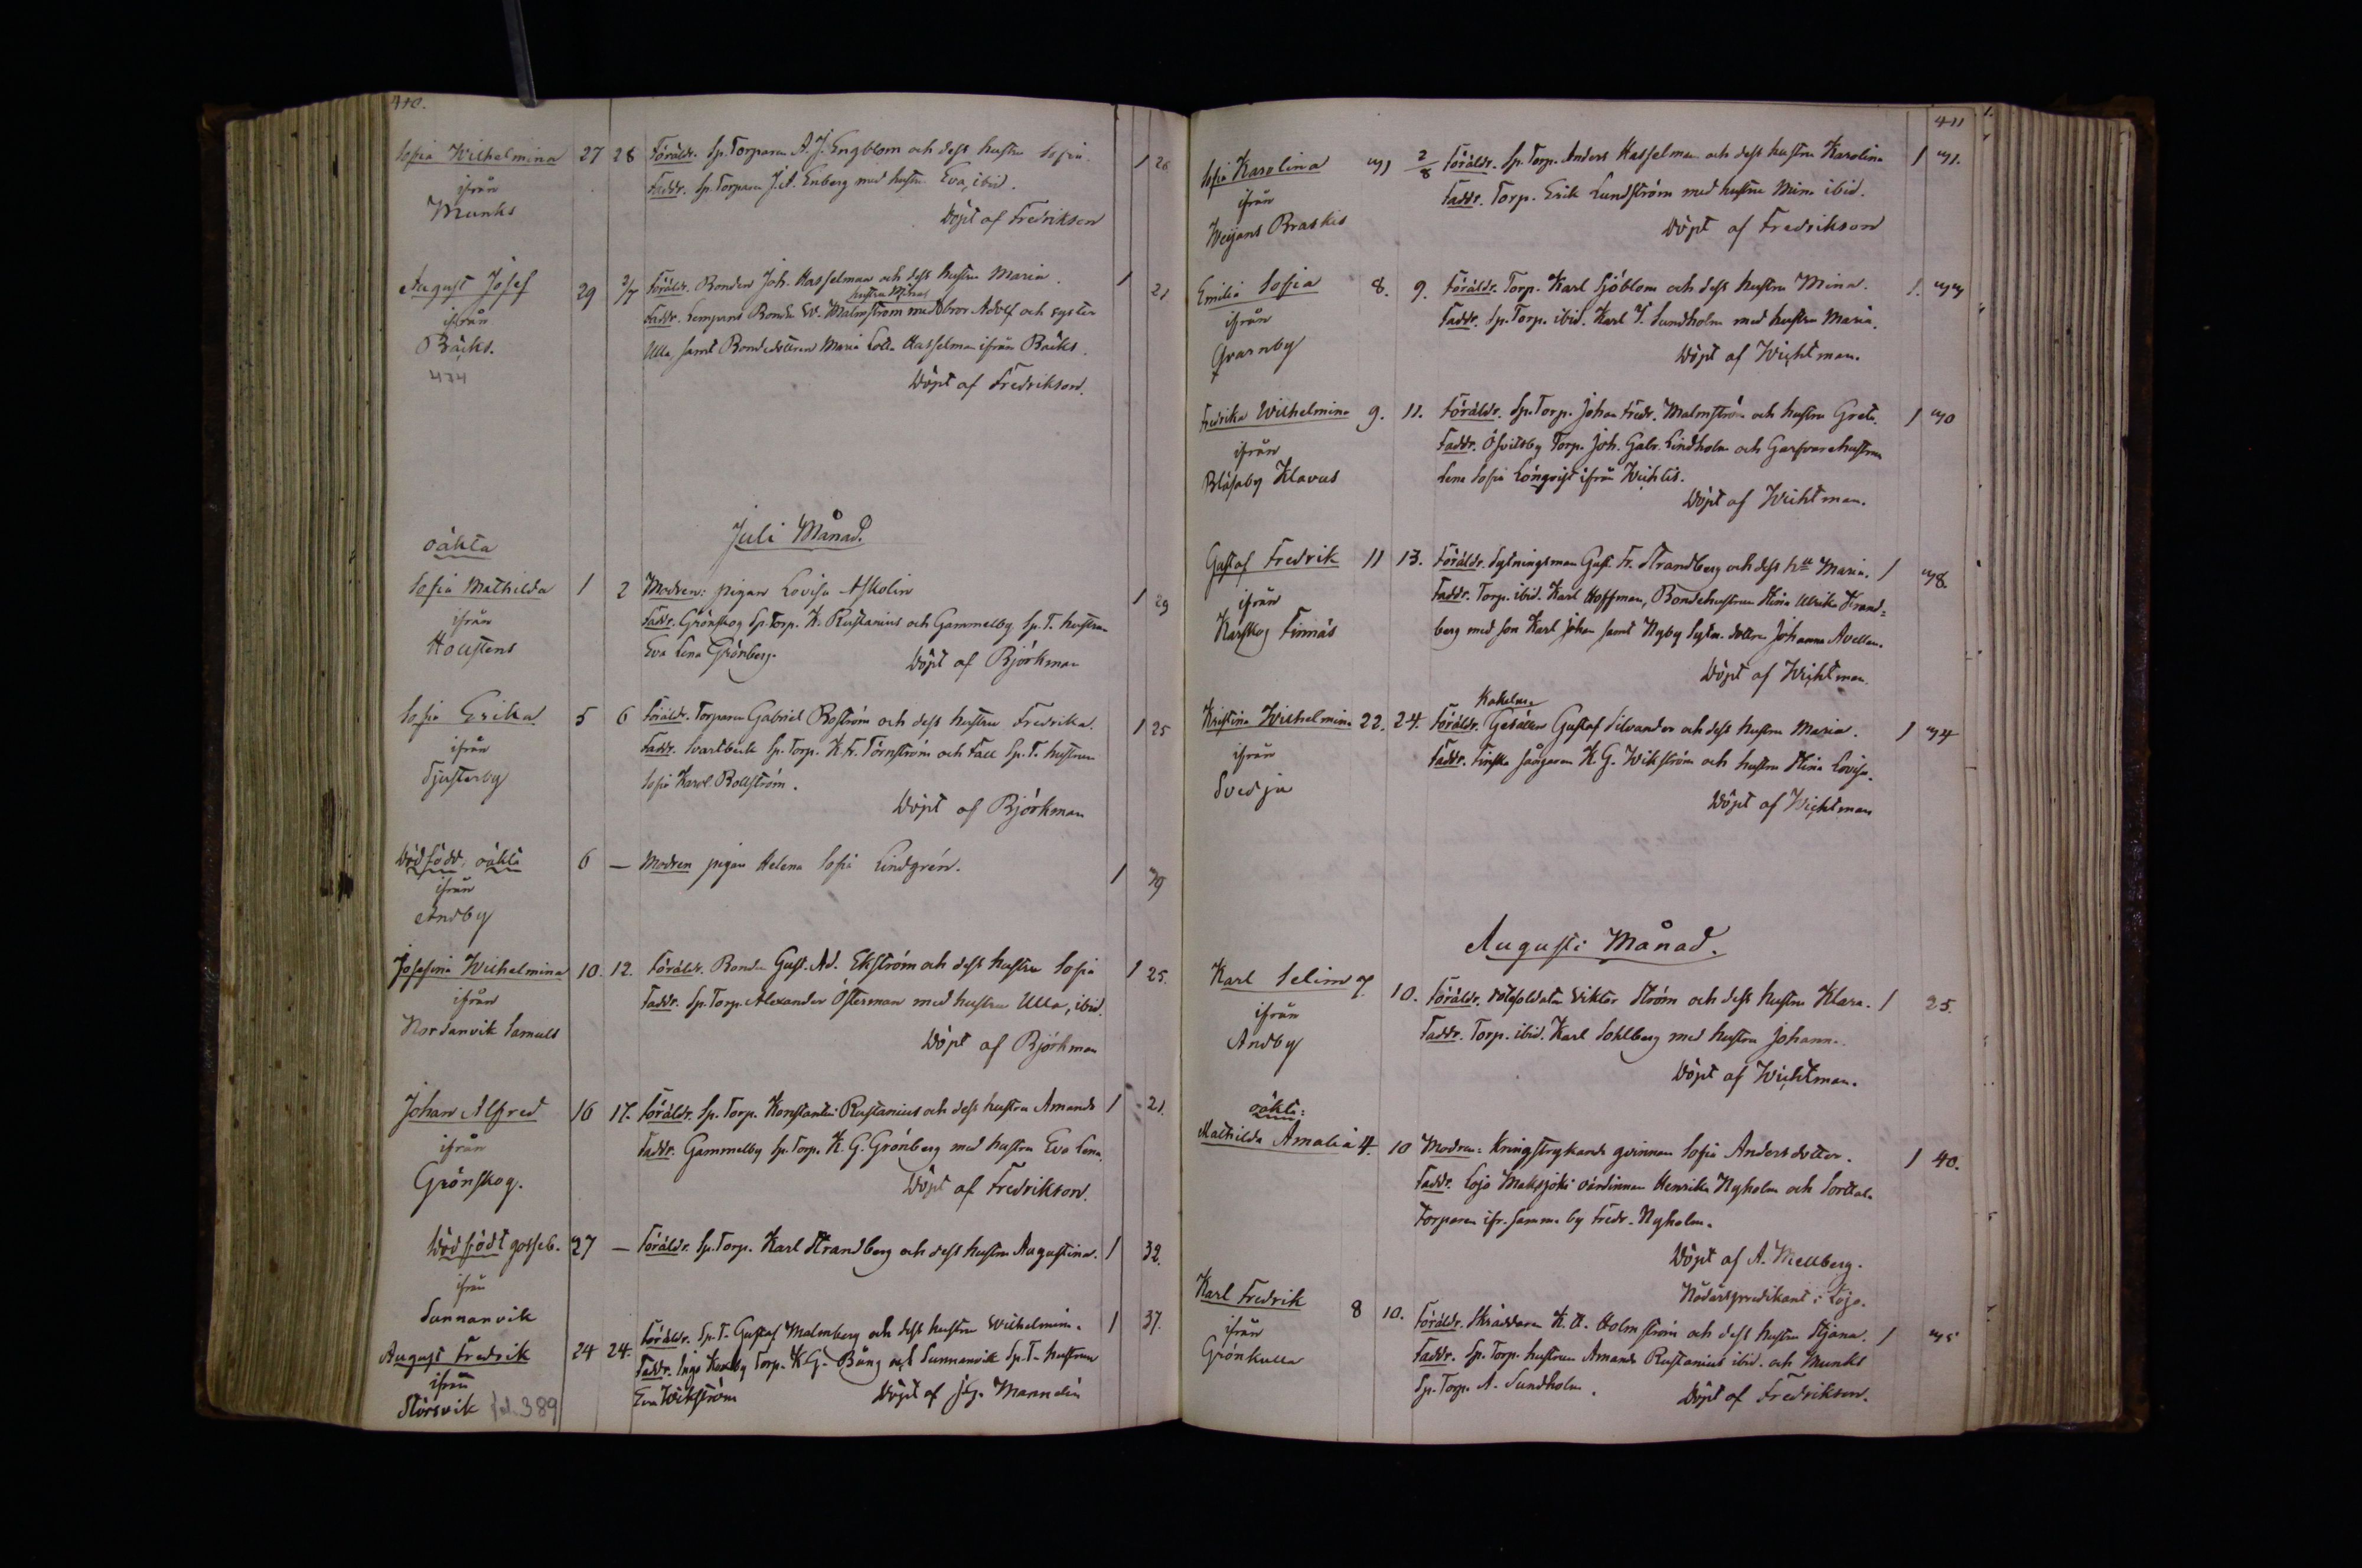 410.
Sofia Wilhelmina 27 28 Föräldr. Sp. Torparen A. J. Engblom och dess hustru Sofia. 1 26
ifrån Faddr. Sp. Torparen J. A. Enberg med hustru Eva, ibid.
Munks Döpt af Fredrikson
August Josef 29 3/7 Föräldr. Bonden Joh. Hasselman och dess hustru Maria. 1 21
hustru Mina
ifrån Faddr. Bonden W. Malmström med bror Adolf och syster
Bäcks. Ulla, samt Bondedottren Maria Lotta Hasselman ifrån Bäcks.
434 Döpt af Fredrikson.
Juli Månad.
oäkta
Sofia Mathilda 1 2 Modren: pigan Lovisa Askolin 1 29
ifrån Faddr. Grönskog Sp. Torp. K. Rustanius och Gammelby Sp. T. hustrun
Houstens Eva Lena Grönberg. Döpt af Björkman
Sofia Erika 5 6 Föräldr. Torparen Gabriel Boström och dess hustru Fredrika. 1 25
ifrån Faddr. Svartbäck Sp. Torp. K. Fr. Törnström och Fall Sp. T. hustrun
Tjusterby Sofia Karol. Bollström.
Döpt af Björkman
Dödfödd, oäkta 6 — Modren pigan Helena Sofia Lindgrén. 1 39
ifrån
Andby
Josefina Wilhelmina 10. 12. Föräldr. Bonden Gust. Ad. Ekström och dess hustru Sofia 1 25.
ifrån Faddr. Sp. Torp. Alexander Österman med hustru Ulla, ibid.
Nordanvik Samuels Döpt af Björkman
Johan Alfred 16 17. Föräldr. Sp. Torp. Konstantin Rustanius och dess hustru Amanda 1 21.
ifrån Faddr. Gammelby Sp. Torp. K. G. Grönberg med hustru Eva Lena.
Grönskog. Döpt af Fredrikson.
Dödfödt gosseb. 27 — Föräldr. Sp. Torp. Karl Strandberg och dess hustru Augustina. 1 32.
ifrån
Sunnanvik
August Fredrik 24 24. Föräldr. Sp. T. Gustaf Malmberg och dess hustru Wilhelmin. 1 37.
ifrån Faddr. Ingo Torp. K. G. Bäng och Sunnanvik Sp. T. hustrun
Störsvik fol. 389 Eva Wikström Döpt af J. G. Mannelin
411
Sofia Karolina 2/8 Föräldr. Sp. Torp. Anders Hasselman och dess hustru Karolina 1
ifrån Faddr. Torp. Erik Lundström med hustru Mina ibid.
Weijans Braskis Döpt af Fredrikson
Emilia Sofia 8. 9. Föräldr. Torp. Karl Sjöblom och dess hustru Mina. 1.
ifrån Faddr. Sp. Torp. ibid. Karl J. Sundholm med hustru Maria.
Qvarnby Döpt af Wichtman.
Fredrika Wilhelmina 9. 11. Föräldr. Sp. Torp. Johan Fredr. Malmström och hustru Greta. 1
ifrån Faddr. Torp. Joh. Gabr. Lindholm och Garfvarehustrun
Blåsaby Klavus Lena Sofia Lönqvist ifrån Wichtis.
Döpt af Wichtman.
Gustaf Fredrik 11 13. Föräldr. Sytningsman Gust. Fr. Strandberg och dess hu Maria. 1
ifrån Faddr. Torp. ibid. Karl Hoffman, Bondehustrun Stina Ulrika Strand=
Karskog Finnäs berg med son Karl Johan samt Nyby Sytn. dottren Johanna Avellan.
Döpt af Wichtman.
Kakelugs
Kristina Wilhelmina 22. 24. Föräldr. Gesällen Gustaf Silvander och dess hustru Maria. 1
ifrån Faddr. Finska sågaren K. G. Wikström och hustru Stina Lovisa.
Svedja Döpt af Wichtman
Augusti Månad.
Karl Selim 10. Föräldr. rotesoldaten Viktor Ström och dess hustru Klara. 1 25.
ifrån Faddr. Torp. ibid. Karl Sohlberg med hustru Johanna.
Andby Döpt af Wichtman.
oäkta:
Mathilda Amalia 4. 10 Modren: Kringstrykande qvinnan Sofia Andersdotter. 1 40.
Faddr. Lojo Maksjoki värdinnan Henrika Nyholm och
Torparen ifr. samma by Fredr. Nyholm.
Döpt af A. Mellberg.
Nödårspredikant i Lojo.
Karl Fredrik 8 10. Föräldr. Skräddaren K. A. Holmström och dess hustru Stjana. 1
ifrån Faddr. Sp. Torp. hustrun Amanda Rustanius ibid. och Munks
Grönkulla Sp. Torp. A. Sundholm. Döpt af Fredrikson.